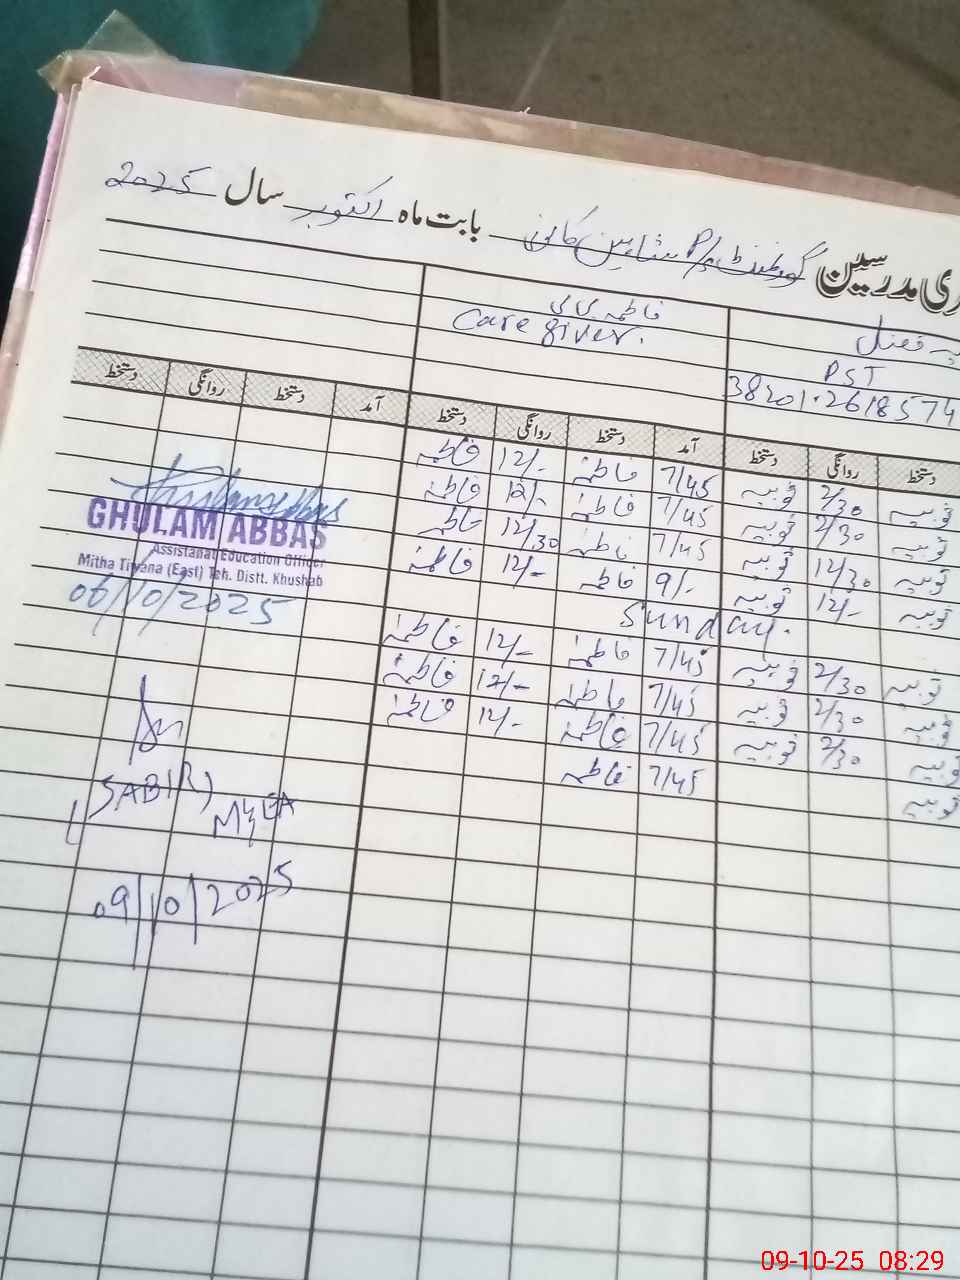 ری مدرسین گورنمنٹ P/S شاہین کالونی بابت ماہ اکتوبر سال 2025
فاطمہ بی بی
Care giver.
یہ فضل
PST
38201-2618574
دستخط روانگی دستخط آمد دستخط روانگی دستخط آمد دستخط روانگی دستخط
ثوبیہ 2/30 ثوبیہ 7/45 فاطمہ 12/- فاطمہ
ثوبیہ 2/30 ثوبیہ 7/45 فاطمہ 12/- فاطمہ
ثوبیہ 12/30 ثوبیہ 7/45 فاطمہ 12/30 فاطمہ
ثوبیہ 12/- ثوبیہ 9/- فاطمہ 12/- فاطمہ
Sunday.
ثوبیہ 2/30 ثوبیہ 7/45 فاطمہ 12/- فاطمہ
ثوبیہ 2/30 ثوبیہ 7/45 فاطمہ 12/- فاطمہ
ثوبیہ 2/30 ثوبیہ 7/45 فاطمہ 12/- فاطمہ
ثوبیہ 7/45 فاطمہ
GHULAM ABBAS
Assistanat Education Officer
Mitha Tiwana (East) Teh. Distt. Khushab
06/10/2025
(SABIR)
M&EA
09/10/2025
09-10-25 08:29